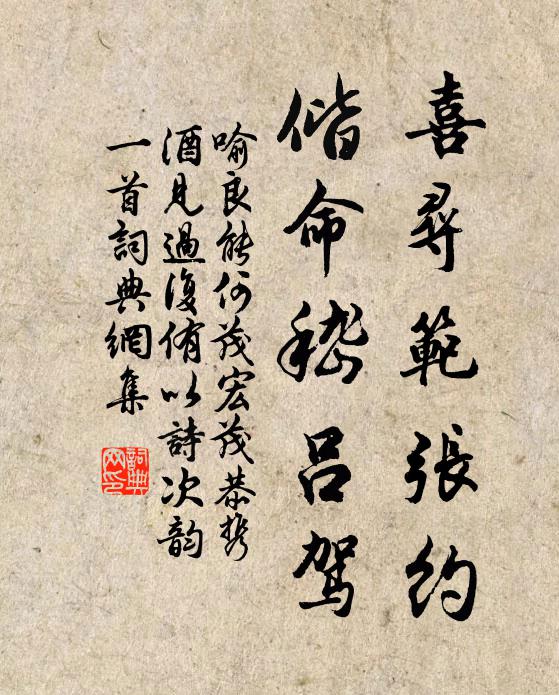 喜尋範張約
偕命嵇呂駕
喻良能何茂宏茂恭携
酒見過復侑以詩次韵
一首詞典網集
詞典
网印